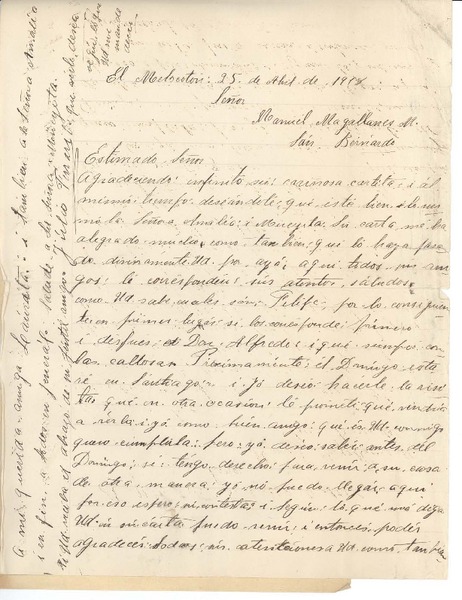 El Melocoton: 25 de Abril de 191
Señor
Manuel Magallanes M.
San Bernardo
Estimado Señor
Agradeciendo infinito su cariñosa cartita: i al
mismo tiempo deseándole; qué esté bien i lo mis
mo la Señora Amalia; i Moneyita. Su carta me ha
alegrado mucho como tambien, qui lo haya pasa
do divinamente Ud. por ayá; aqui todos, sus ami
gos: le corresponden sus atentos, saludos
como Ud. sabe cuales són; Felipe, por lo consiguen
te en primer lugar se los corresponde; primero
i despues a Don Alfredo: i qué siempre con
las callosas. Proximamente; el Domingo esta
ré en Santiago: i yó deseo hacerle la visi
ta; qué en otra ocasion: le prometí qué vendria
a verlo: i yó como buen amigo: qué es Ud. conmigo
quiero cumplirla: pero: yó deseo saber antes del
Domingo; si tengo derecho; para venir a su casa
de otra manera; yó nó puedo llegar; aqui
por eso espero; su contesta: i segun lo qué mé diga
Ud. en su carta puedo venir i entonces poder
agradecer todas; sus atenciones a Ud. como, tambien
a mi querida amiga; i tambien a la Señora Amalia
i en fin: a todos en jeneral: Saluda a la Monoyita
Reciba Ud. nuevo el abrazo de su fiel amigo: Julio